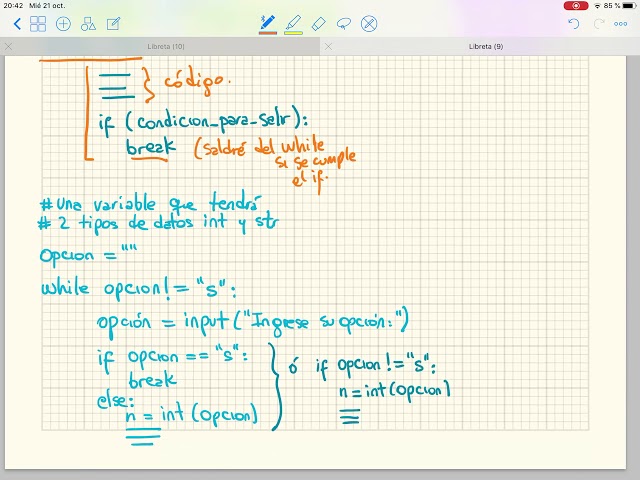 20:42 Mié 21 oct.
85 %
Libreta (10)
Libreta (9)
} código.
if (condicion_para_salir):
break (saldré del while
si se cumple
el if.
# Una variable que tendrá
# 2 tipos de datos int y str
opcion = ""
while opcion != "s":
opción = input("Ingrese su opción:")
if opcion == "s":
break
else:
n = int(opcion)
ó if opcion != "s":
n = int(opcion)